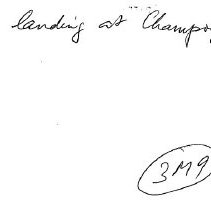 landing at Champo
3M9